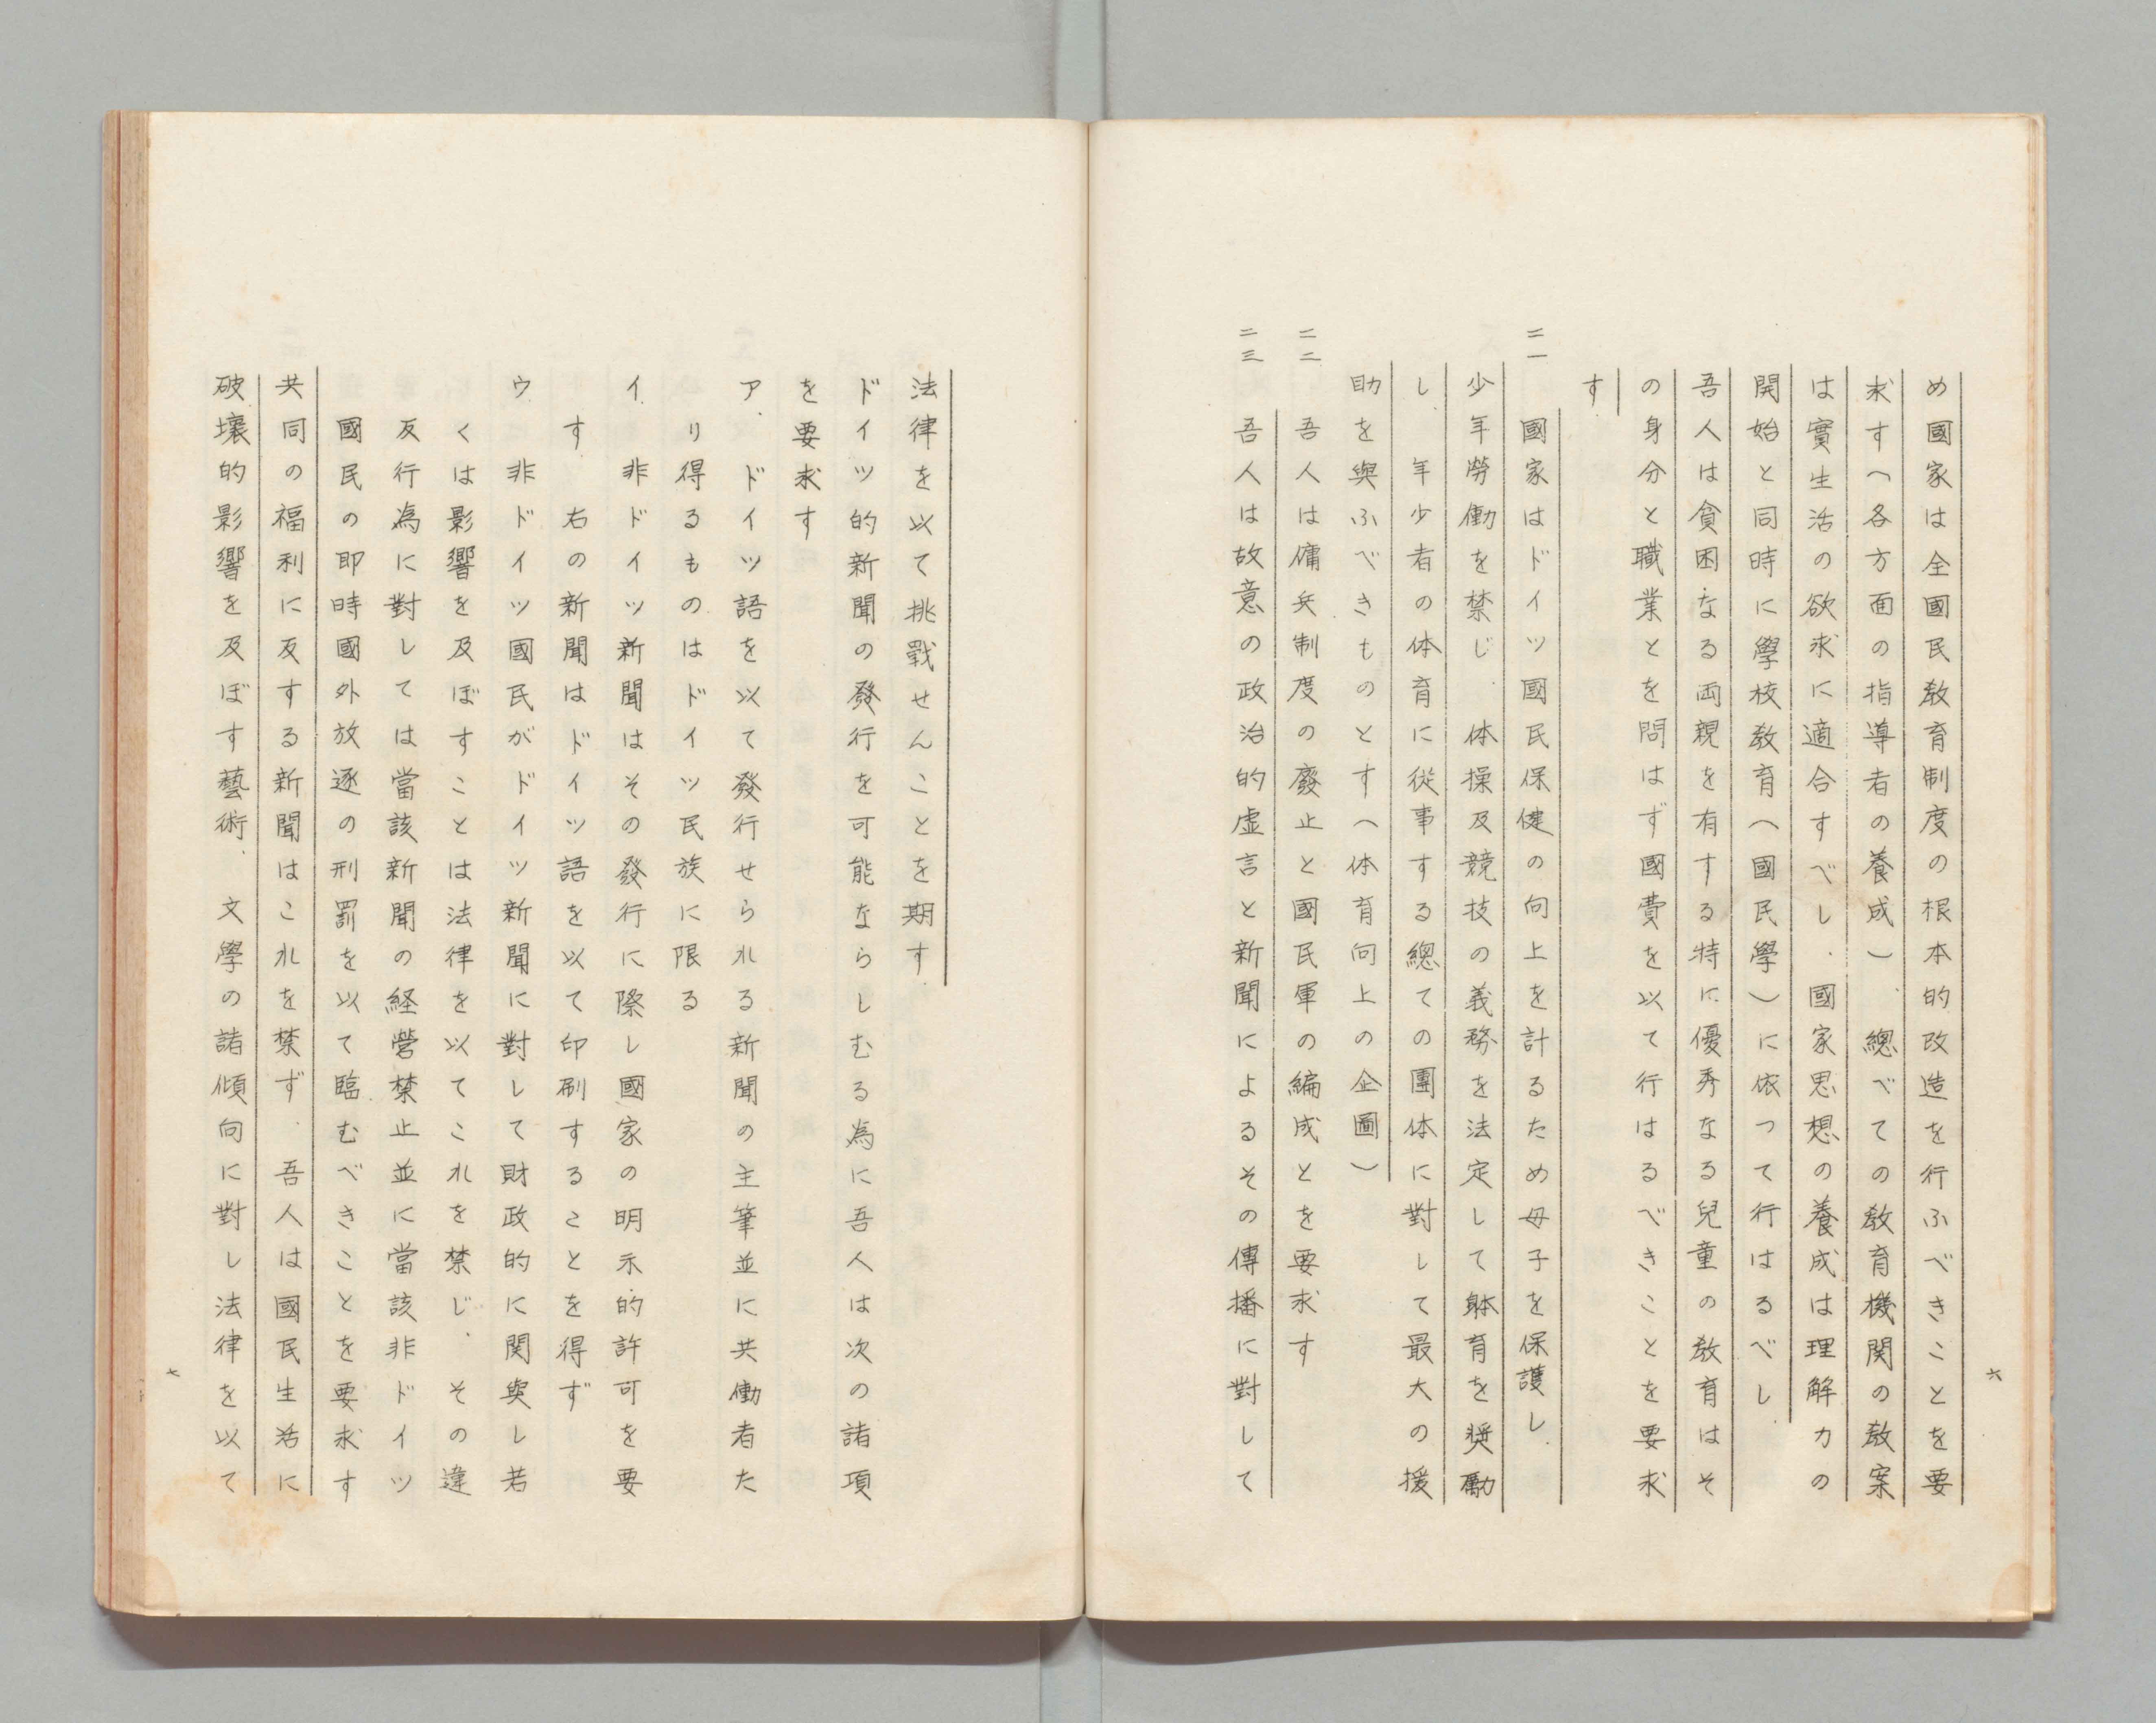 め國家は全國民敎育制度の根本的改造を行ふべきことを要
求す（各方面の指導者の養成）、總べての敎育機関の敎案
は實生活の欲求に適合すべし、國家思想の養成は理解力の
開始と同時に學校敎育（國民學）に依つて行はるべし、
吾人は貧困なる両親を有する特に優秀なる兒童の敎育はそ
の身分と職業とを問はず國費を以て行はるべきことを要求
す
二一 國家はドイツ國民保健の向上を計るため母子を保護し、
少年勞働を禁じ、体操及競技の義務を法定して躰育を奨勵
し、年少者の体育に從事する總ての團体に對して最大の援
助を與ふべきものとす（体育向上の企圖）
二二 吾人は傭兵制度の廢止と國民軍の編成とを要求す
二三 吾人は故意の政治的虚言と新聞によるその傳播に對して
六
法律を以て挑戰せんことを期す、
ドイツ的新聞の發行を可能ならしむる為に吾人は次の諸項
を要求す
ア、ドイツ語を以て發行せられる新聞の主筆並に共働者た
り得るものはドイツ民族に限る
イ、非ドイツ新聞はその發行に際し國家の明示的許可を要
す　右の新聞はドイツ語を以て印刷することを得ず
ウ、非ドイツ國民がドイツ新聞に對して財政的に関與し若
くは影響を及ぼすことは法律を以てこれを禁じ、その違
反行為に對しては當該新聞の経營禁止並に當該非ドイツ
國民の即時國外放逐の刑罰を以て臨むべきことを要求す
共同の福利に反する新聞はこれを禁ず、吾人は國民生活に
破壞的影響を及ぼす藝術、文學の諸傾向に對し法律を以て
七